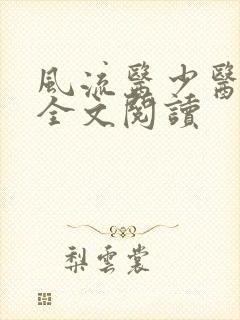 風流醫少醫
全文閱讀
梨雲裳